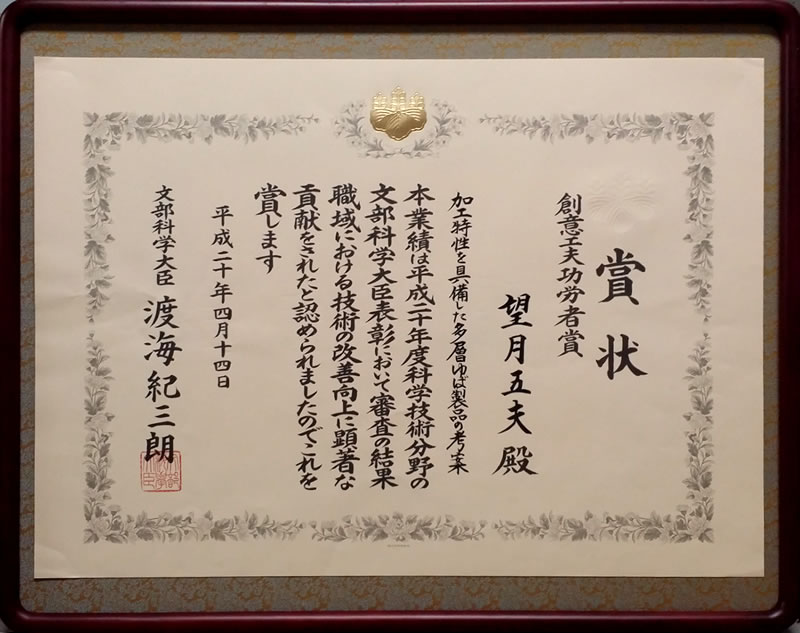 賞状
創意工夫功労者賞
望月五夫殿
加工特性を具備した多層ゆば製品の考案
本業績は平成二十年度科学技術分野の
文部科学大臣表彰において審査の結果
職域における技術の改善向上に顕著な
貢献をされたと認められましたのでこれを
賞します
平成二十年四月十四日
文部科学大臣 渡海紀三朗